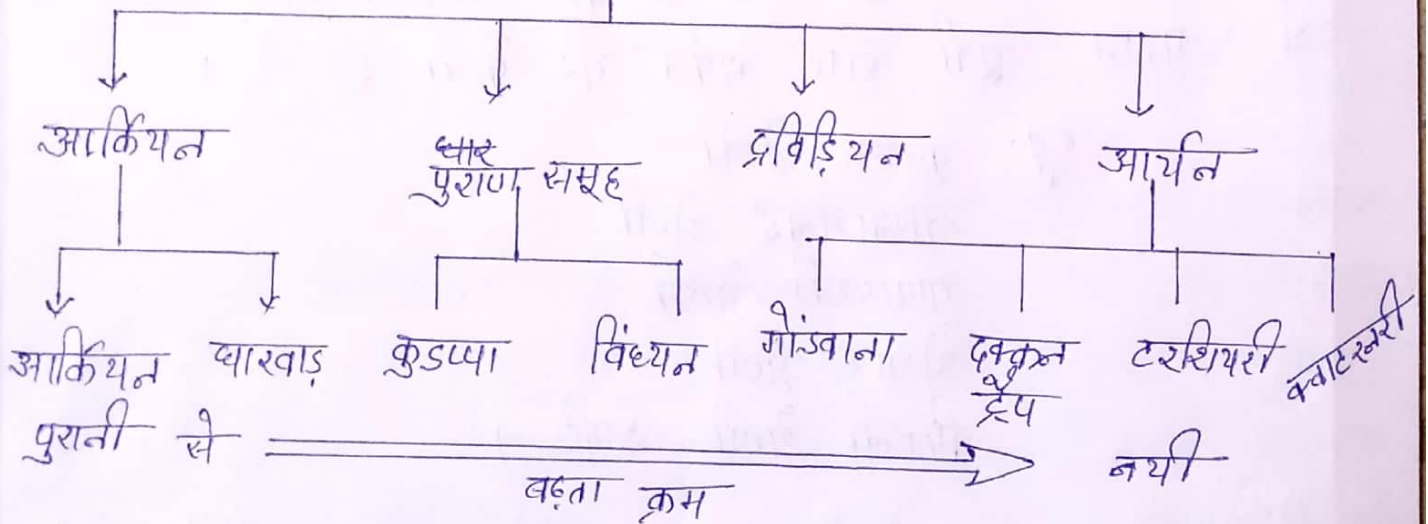 आर्कियन धार पुराण समूह द्रविड़ियन आर्यन
आर्कियन धारवाड़ कुडप्पा विंध्यन गोंडवाना दक्कन ट्रैप टरशियरी क्वाटरनरी
पुरानी से नयी
बढ़ता क्रम